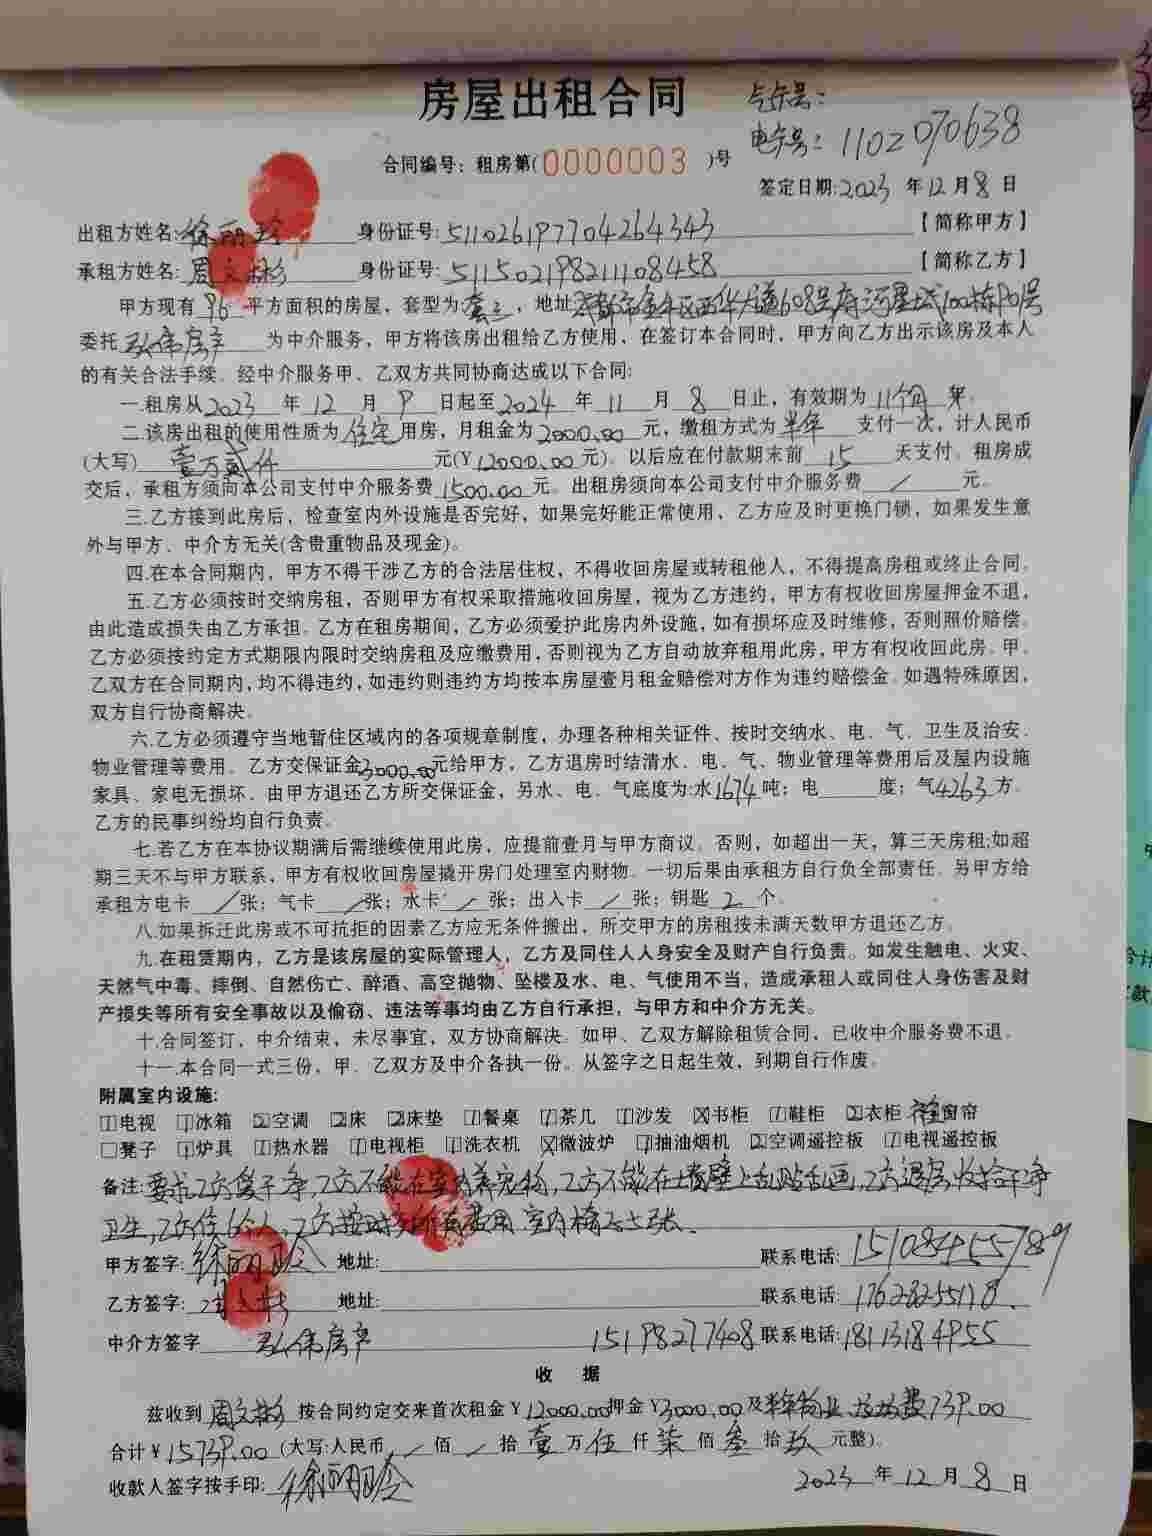 房屋出租合同
气卡号：
电卡号：1102070638
合同编号：租房第(0000003)号
签定日期:2023年12月8日
出租方姓名:徐丽玲 身份证号:511026197704264343 【简称甲方】
承租方姓名:周文彬 身份证号:511502198211108458 【简称乙方】
甲方现有96平方面积的房屋，套型为套三，地址成都市金牛区西华大道608号府河星城100栋 号
委托弘伟房产为中介服务，甲方将该房出租给乙方使用，在签订本合同时，甲方向乙方出示该房及本人
的有关合法手续。经中介服务甲、乙双方共同协商达成以下合同:
一.租房从2023年12月9日起至2024年11月8日止，有效期为11个月 年。
二.该房出租的使用性质为住宅用房，月租金为2000.00元，缴租方式为半年支付一次，计人民币
(大写)壹万贰仟元(￥12000.00元)。以后应在付款期末前15天支付。租房成
交后，承租方须向本公司支付中介服务费1500.00元。出租房须向本公司支付中介服务费/元。
三.乙方接到此房后，检查室内外设施是否完好，如果完好能正常使用，乙方应及时更换门锁，如果发生意
外与甲方、中介方无关(含贵重物品及现金)。
四.在本合同期内，甲方不得干涉乙方的合法居住权，不得收回房屋或转租他人，不得提高房租或终止合同。
五.乙方必须按时交纳房租，否则甲方有权采取措施收回房屋，视为乙方违约，甲方有权收回房屋押金不退，
由此造成损失由乙方承担。乙方在租房期间，乙方必须爱护此房内外设施，如有损坏应及时维修，否则照价赔偿。
乙方必须按约定方式期限内限时交纳房租及应缴费用，否则视为乙方自动放弃租用此房，甲方有权收回此房。甲、
乙双方在合同期内，均不得违约，如违约则违约方均按本房屋壹月租金赔偿对方作为违约赔偿金。如遇特殊原因，
双方自行协商解决。
六.乙方必须遵守当地暂住区域内的各项规章制度，办理各种相关证件、按时交纳水、电、气、卫生及治安、
物业管理等费用。乙方交保证金3000.00元给甲方，乙方退房时结清水、电、气、物业管理等费用后及屋内设施
家具、家电无损坏。由甲方退还乙方所交保证金，另水、电、气底度为:水1674吨；电 度；气4263方。
乙方的民事纠纷均自行负责。
七.若乙方在本协议期满后需继续使用此房，应提前壹月与甲方商议。否则，如超出一天，算三天房租;如超
期三天不与甲方联系，甲方有权收回房屋撬开房门处理室内财物。一切后果由承租方自行负全部责任。另甲方给
承租方电卡/张；气卡/张；水卡/张；出入卡/张；钥匙2个。
八.如果拆迁此房或不可抗拒的因素乙方应无条件搬出，所交甲方的房租按未满天数甲方退还乙方。
九.在租赁期内，乙方是该房屋的实际管理人，乙方及同住人人身安全及财产自行负责。如发生触电、火灾、
天然气中毒、摔倒、自然伤亡、醉酒、高空抛物、坠楼及水、电、气使用不当，造成承租人或同住人身伤害及财
产损失等所有安全事故以及偷窃、违法等事均由乙方自行承担，与甲方和中介方无关。
十.合同签订，中介结束，未尽事宜，双方协商解决。如甲、乙双方解除租赁合同，已收中介服务费不退。
十一.本合同一式三份，甲、乙双方及中介各执一份。从签字之日起生效，到期自行作废。
附属室内设施:
1电视 1冰箱 2空调 2床 2床垫 1餐桌 1茶几 1沙发 X书柜 1鞋柜 2衣柜 窗帘
□凳子 1炉具 1热水器 1电视柜 1洗衣机 X微波炉 1抽油烟机 2空调遥控板 1电视遥控板
备注:要求乙方爱干净，乙方不能在室内养宠物，乙方不能在墙壁上乱贴乱画，乙方退房收拾干净
卫生，乙方住6个人，乙方按时交所有费用，室内椅子七张。
甲方签字:徐丽玲 地址: 联系电话:15108455789
乙方签字:周文彬 地址: 联系电话:17628255178
中介方签字 弘伟房产 15198277408 联系电话:18113184955
收 据
兹收到周文彬按合同约定交来首次租金￥12000.00押金￥3000.00及半年物业、垃圾费739.00
合计￥15739.00(大写:人民币/佰/拾壹万伍仟柒佰叁拾玖元整)。
收款人签字按手印:徐丽玲 2023年12月8日